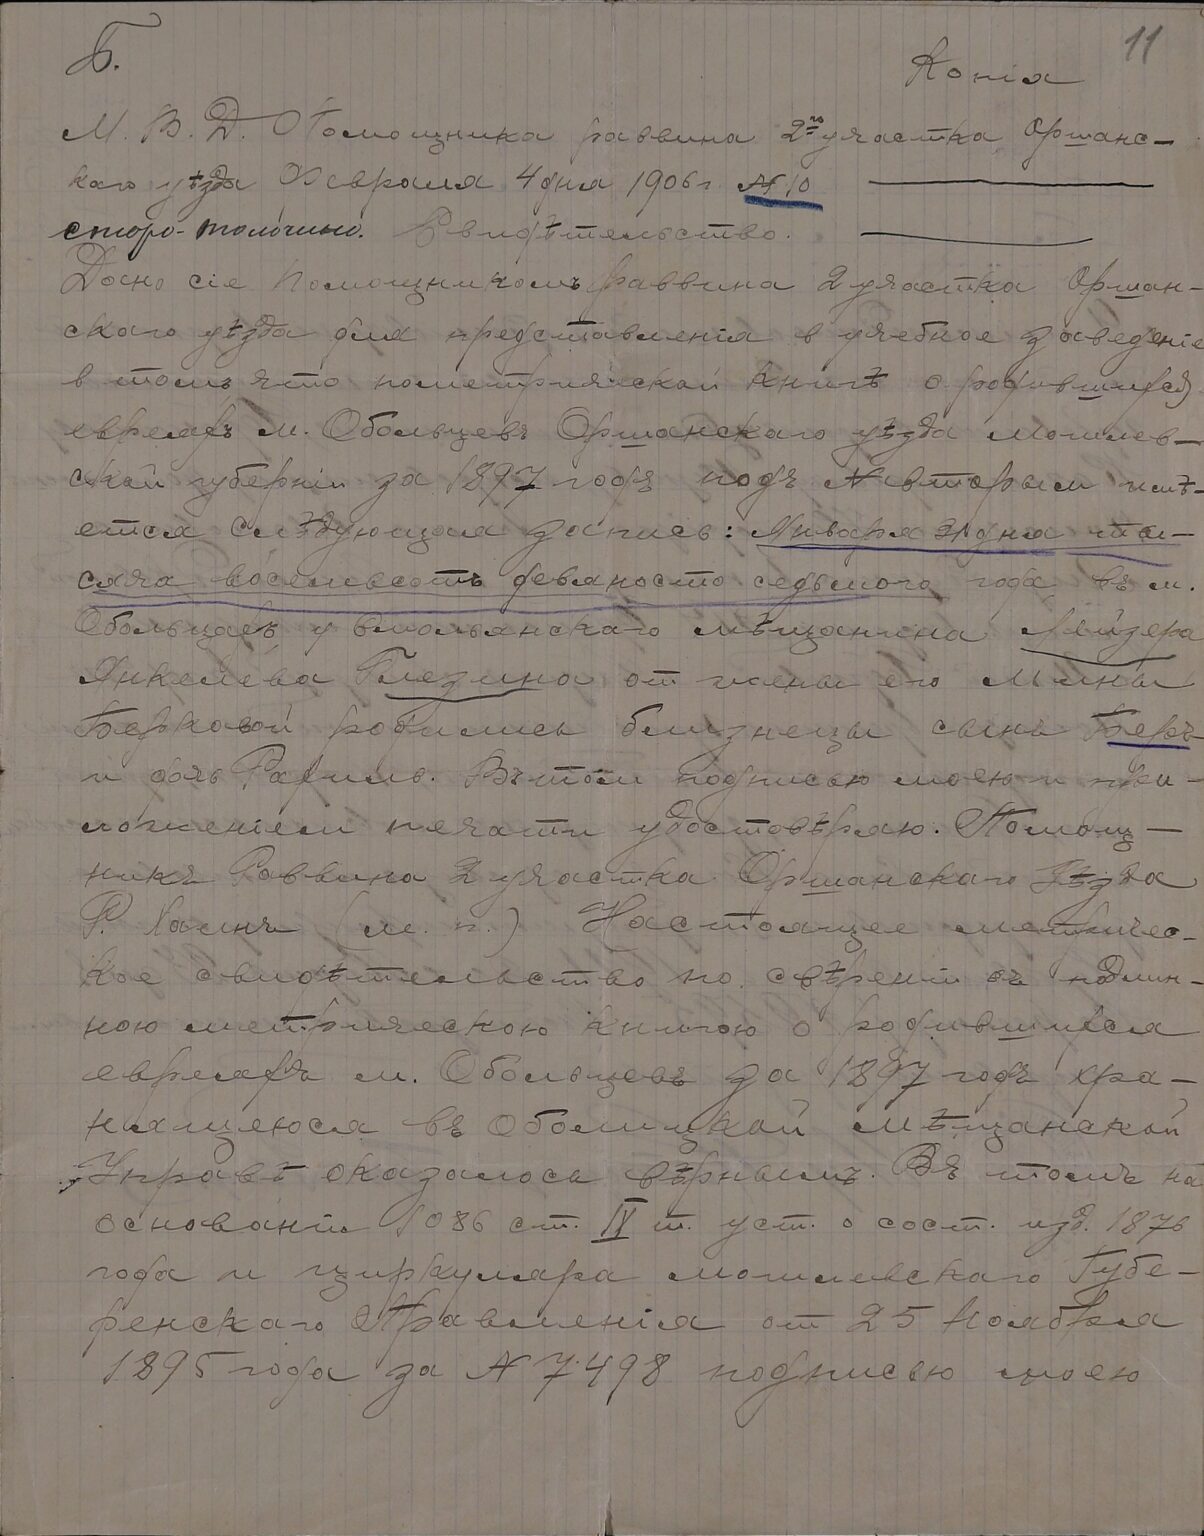 Б.
11
Копія
М. В. Д. Помощника раввина 2го участка Оршанс-
каго уѣзда Февраля 4 дня 1906 г. № 10
старо-толочино. Свидѣтельство.
Дано сіе Помощникомъ раввина 2 участка Оршан-
скаго уѣзда для представленія в учебное заведеніе
в томъ что пометрической книгѣ о родившихся
евреяхъ м. Обольцевъ Оршанскаго уѣзда Могилев-
ской губерніи за 1897 годъ подъ № вторым имѣ-
ется слѣдующая запись: Января 31 дня ты-
сяча восемьсотъ девяносто седьмого года, въ м.
Обольцахъ у Смольянскаго мѣщанина Лейзера
Янкелева Глезина от жены его Мины
Берковой родились близнецы сынъ Беръ
и дочь Рахиль. Въ том подписью моею и при-
ложеніем печати удостовѣряю. Помощ-
никъ Раввина 2 участка Оршанскаго уѣзда
Р. Хаинъ (м. п.) Настоящее метричес-
кое свидѣтельство по свѣреніи съ подлин-
ною метрическою книгою о родившихся
евреяхъ м. Обольцевъ за 1897 годъ хра-
нящеюся въ Оболицкой мѣщанской
Управѣ оказалось вѣрнымъ. Въ томъ на
основаніи 1086 ст. IX т. уст. о сост. изд. 1876
года и циркуляра могилевскаго Губе-
ренскаго Правленія от 25 Ноября
1895 года за № 7498 подписью моею